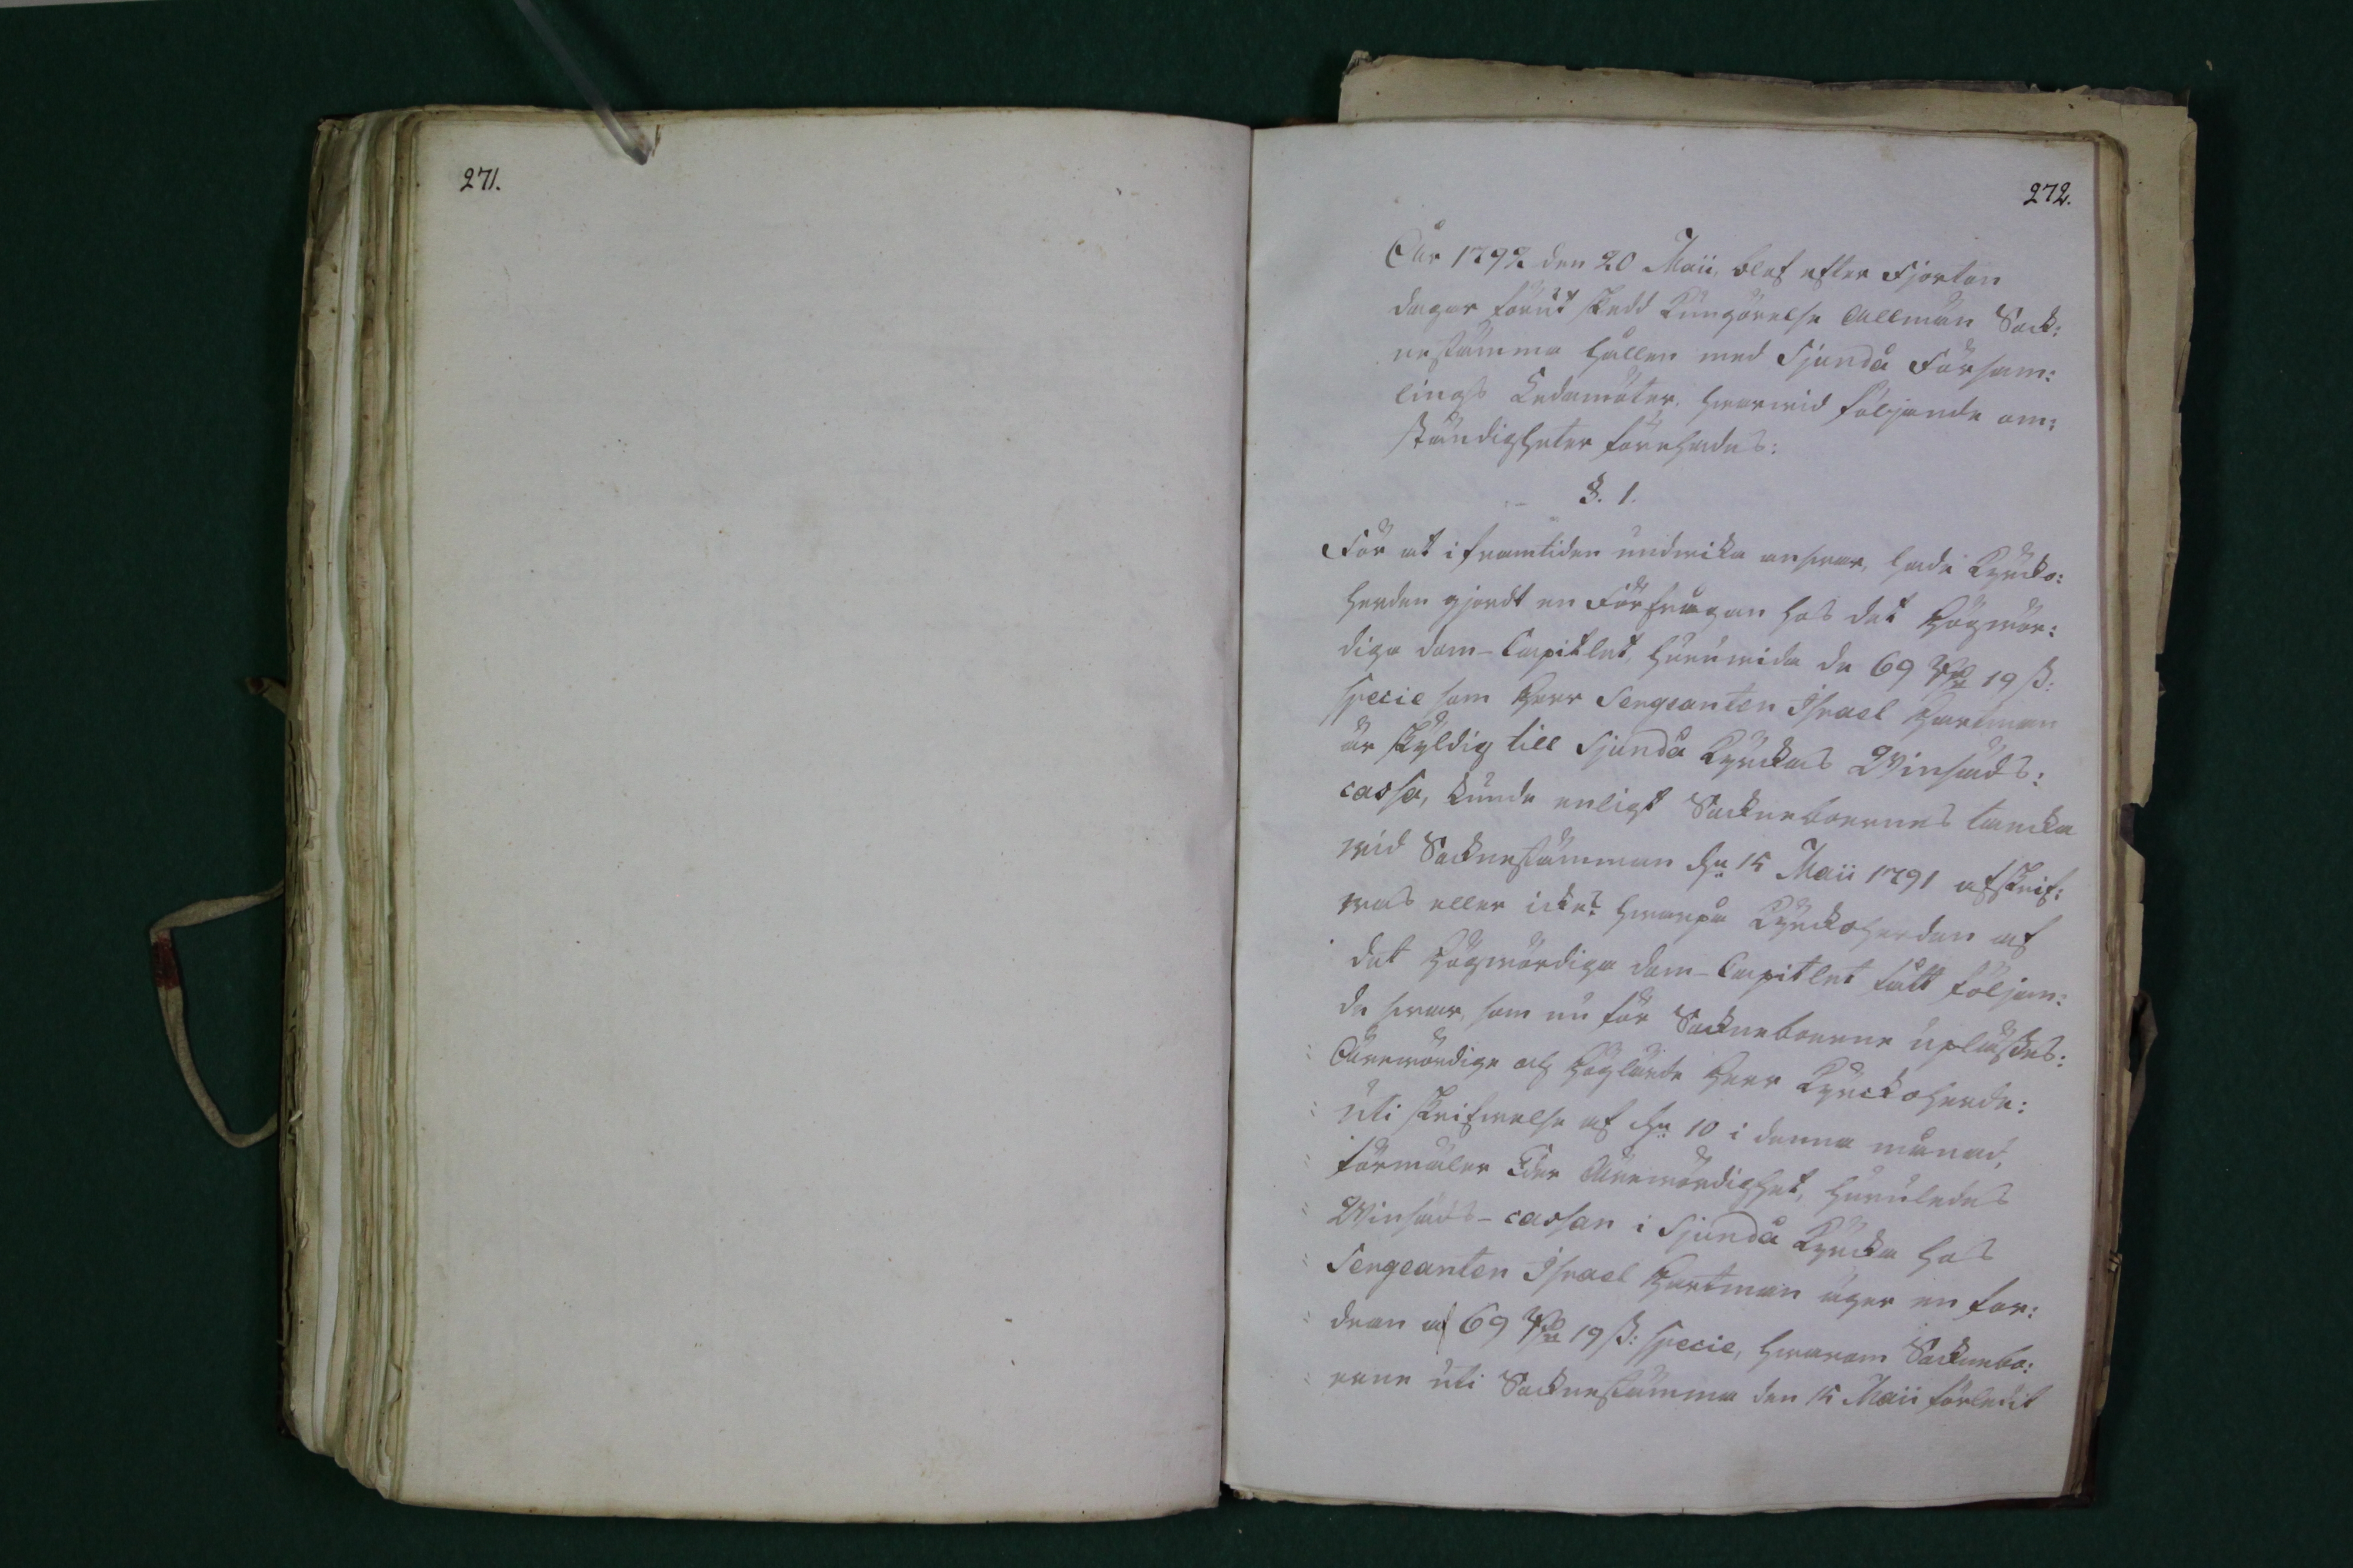 271.
272.
År 1792 den 20 Maii, blef efter Fjorton
dagar förut skedd Kungörelse Allmän Sock:
nestämma hållen med Sjundå Försam:
lings Ledamöter, hwarwid följande om:
ständigheter förehades:
§. 1.
För at i framtiden undwika answar, hade Kyrko:
herden gjordt en Förfrågan hos det Högwör:
diga Dom-Capitlet, huruwida de 69 Rd 19 ß:
specie som Herr Sergeanten Israel Hartman
är skyldig till Sjundå Kyrckas Winsäds:
cassa, kunde enligt Sockneboernes tancka
wid Socknestämman dn 15 Maii 1791 afskrif:
was eller icke? hwarpå Kyrckoherden af
det Högwördiga Dom-Capitlet fått följan:
de swar, som nu för Sockneboerne upläsdes:
Ärewördige och Höglärde Herr Kyrckoherde:
Uti skrifwelse af dn 10 i denna månad,
förmäler Eder Ärewördighet, huruledes
Winsäds-cassan i Sjundå Kyrcka hos
Sergeanten Israel Hartman äger en for:
dran af 69 Rd 19 ß: specie, hwarom Socknebo:
erne uti Socknestämma den 15 Maii förledit